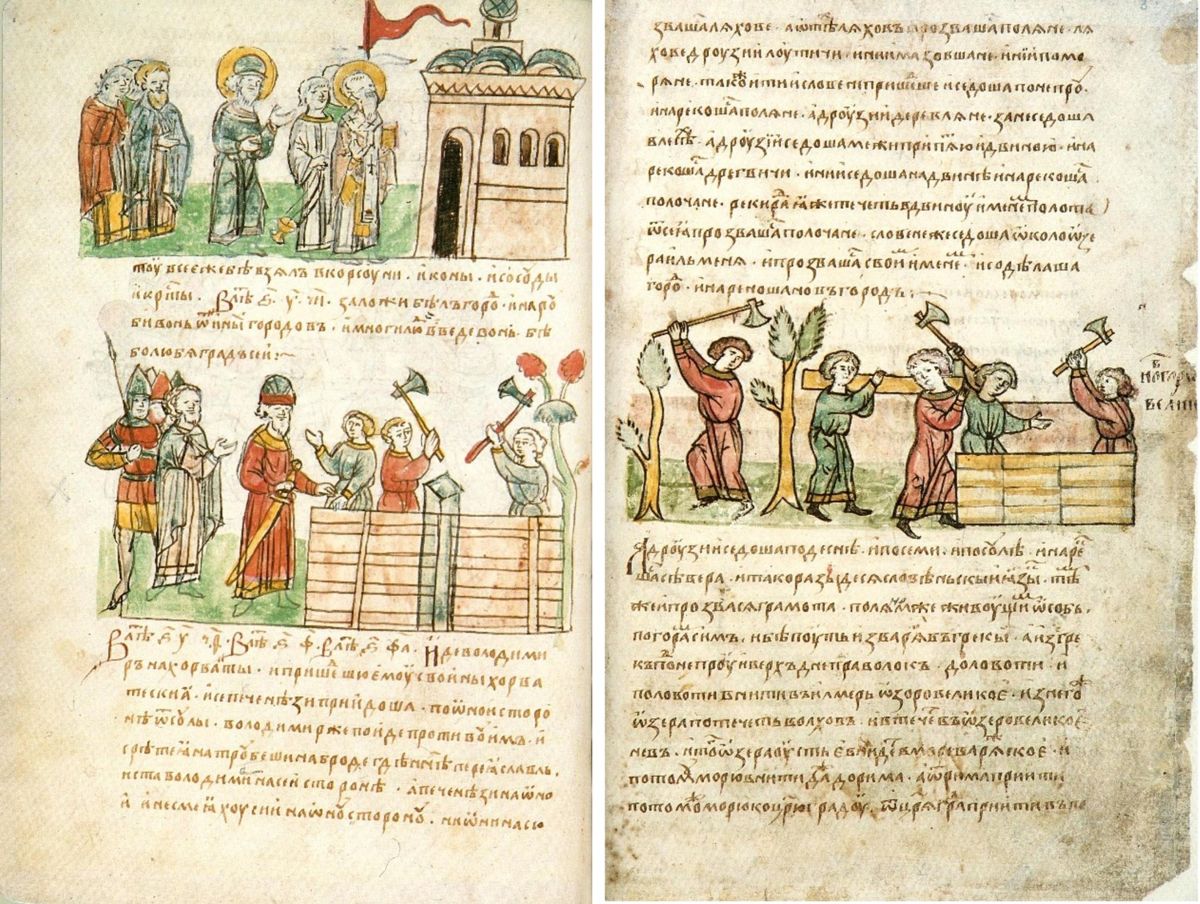 тоу все єже бѣ взѧлъ в корсоуни · иконы · и сосоуды
и крⷭ҇ты · В лѣⷮ ҂ѕ҃ · у҃ · заложи бѣлъгороⷣ · и наро
би во нь ѿ инⷯы городовъ · и много людⷢ҇ введе во нь · бѣ
бо любѧ градъ сеи :~
В лѣⷮ ҂ѕ҃ у҃ · В лѣⷮ ҂ѕ҃ ф҃ · В лѣⷮ ҂ѕ҃ ф҃а · И де володими
ръ на хорваты · и пришедшю ємоу с воины хорва
тьскиꙗ · и се печенѣзи приидоша · по ѡнои сторо
нѣ ѿ соулы · володимир же поиде противоу имъ · и
срѣте ꙗ на троубеши на броде где нн҃ѣ переꙗславль,
и ста володимиръ на сеи сторонѣ · а печенѣзи на ѡно
и и не смеꙗхоу сии на ѡноу стороноу · ни ѡни на сю
зваша лѧхове · а ѿ тѣⷯ лѧховъ прозваша полѧне · лѧ
хове дроузии лоутичи · инии мазовшане · инии помо
рѧне · тако ⷤ и ти словене пришеⷣше и седоша по непроу ·
и нарекоша полѧне · а дроузии деревлѧне · зане седоша
в лесеⷯ · а дроузии седоша межи припѧю и двиною · и на
рекоша дрегвичи · инии седоша на двинѣ и нарекошаⷭ
полочане · реки раⷣ ꙗже течеть в двиноу именеⷨ полота
ѿ сеꙗ прозвашаⷭ полочане · словене же седоша ѡколо ѡзе
ра ильменѧ · и прозвашаⷭ своиⷨ именеⷨ · и соделаша
гороⷣ · и нарекоша новъгородъ :~
в
новгороⷣ
велик
А дроузии седоша по десне · и по семи · и по соулѣ · и наре
шаⷭ севера · и тако разыдесѧ словѣньскыи ꙗзыⷦ · тѣⷨ
же и прозвасѧ грамота · полѧноⷨ же живоущиⷨ ѡ собѣ ·
по гораⷨ симъ · и бѣ поуть из варѧгъ в грекы · а из гре
къ по непроу и верхъ днепра волокъ · до ловоти · и
по ловоти внити в илмерь ѡзоро великоє · из негоⷤ
ѡзера потечеть волховъ · и втечеⷮ въ ѡзеро великоє
нево · и тоⷢ ѡзера оустьє внидеⷮ в море варѧское · и
по томоу морю внити даⷤ до рима · а ѿ рима прити
по томоуⷤ морю ко цр҃юградоу · ѿ цр҃ѧграⷣ прити в по